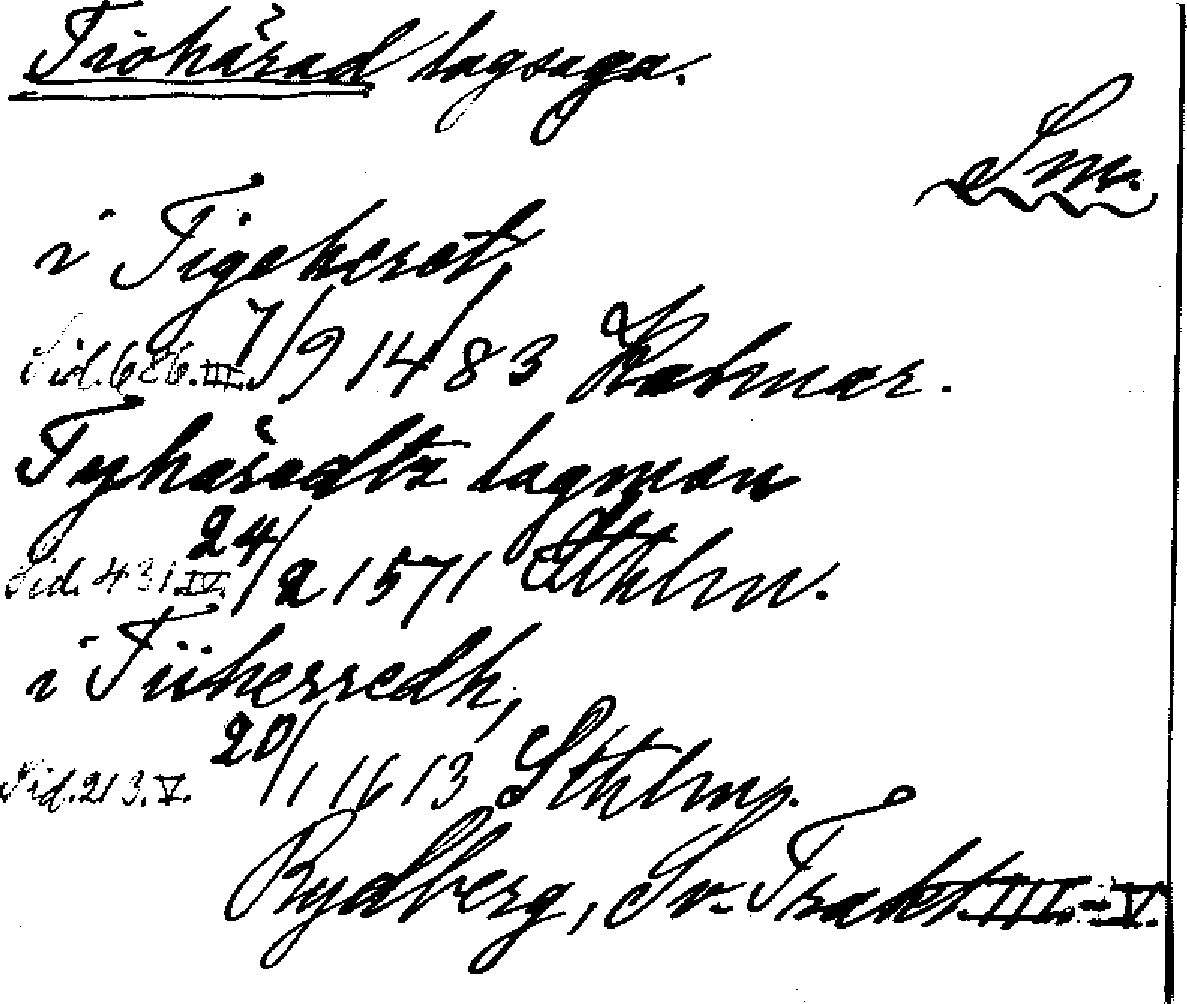 Tiohärad lagsaga.
Sm.
i Tigeherat,
Sid. 686. III. 7/9 1483 Kalmar.
Tyhäredtz lagman
Sid. 431 IV. 24/2 1571 Sthlm.
i Tiiherredh,
Sid. 213. V. 20/1 1613 Sthlm.
Rydberg, Sv. Trakt. III.-V.